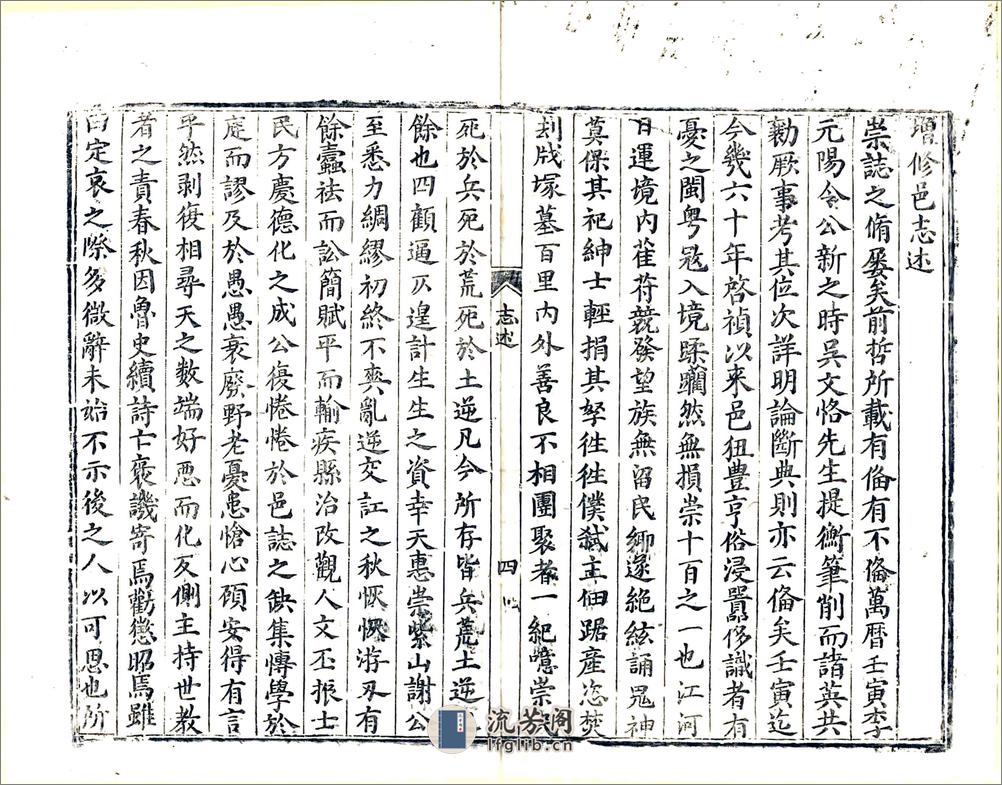 增修邑志述
崇誌之脩屢矣前哲所載有俻有不俻萬曆壬寅李
元陽令公新之時吳文恪先生提衡筆削而諸英共
勷厥事考其位次詳明論斷典則亦云俻矣壬寅迄
今幾六十年啓禎以來邑狃豊亨俗浸囂侈識者有
憂之閩粤冦入境蹂躪然無損崇十百之一也江河
日運境内萑苻競發望族無留民鄉遂絶絃誦鬼神
莫保其祀紳士輕捐其孥徃徃僕弑主佃踞産恣焚
刦戕塚墓百里内外善良不相團聚者一紀噫崇
死於兵死於荒死於土逆凡今所存皆兵荒土逆
餘也四顧逼仄遑計生生之資幸天惠崇紫山謝公
至悉力綢繆初終不爽亂逆交訌之秋恢恢游刄有
餘蠧袪而訟簡賦平而輸疾縣治改觀人文丕振士
民方慶德化之成公復惓惓於邑誌之缺集博學於
庭而謬及於愚愚衰廢野老憂患愴心碩安得有言
乎然剥復相尋天之數端好惡而化反側主持世教
者之責春秋因魯史續詩亡褒譏寄焉勸懲昭焉雖
曰定哀之際多微辭未始不示後之人以可思也所
志述
四
流芳阁
lfglib.cn